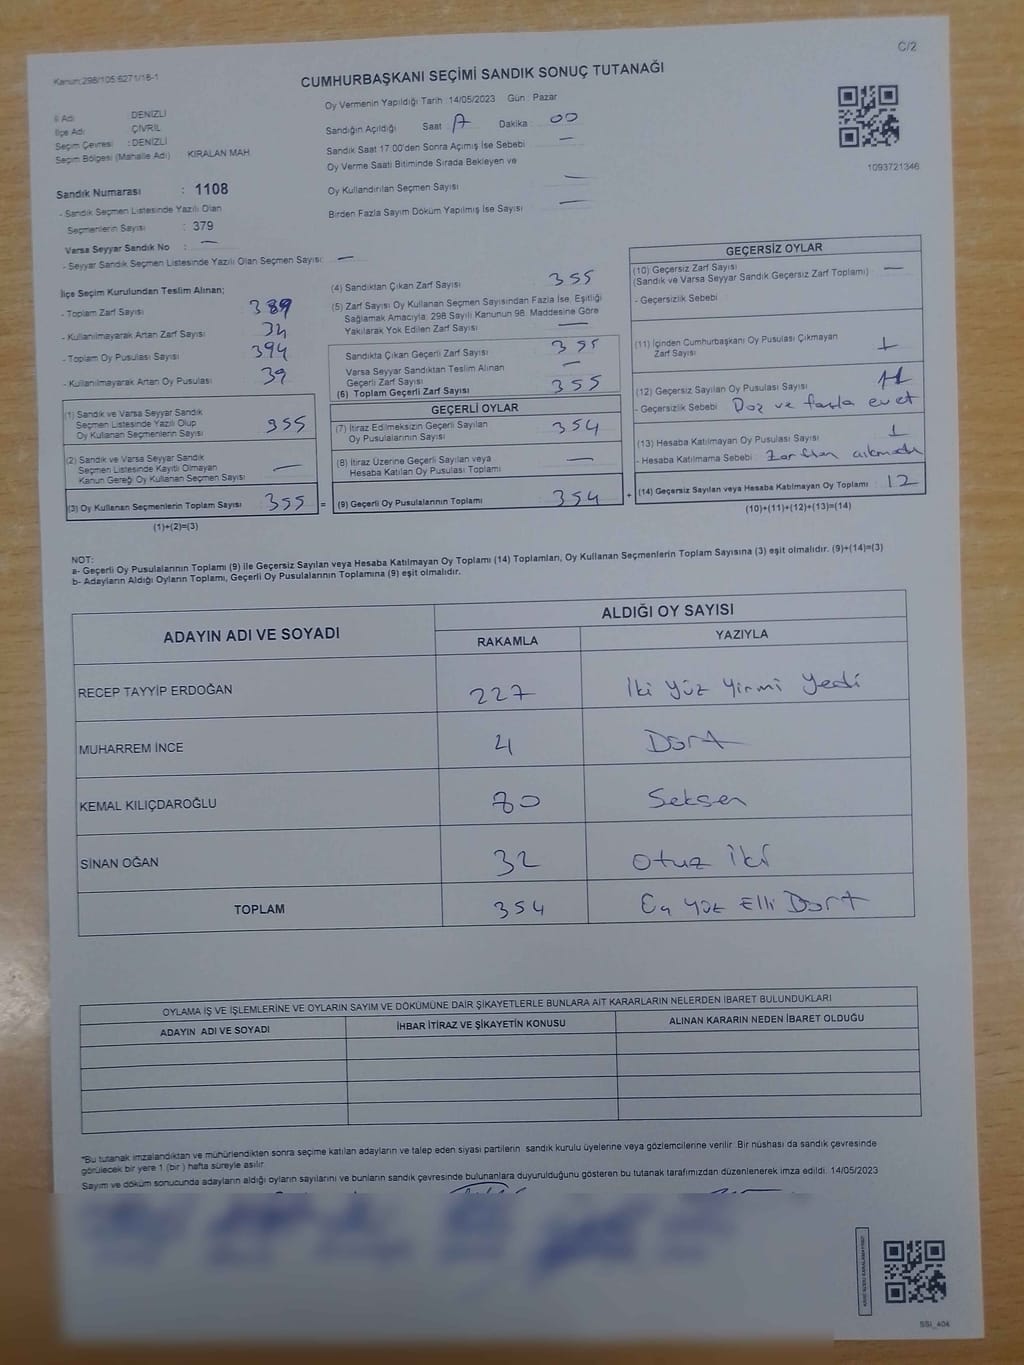 C/2
Kanun:298/105:6271/18-1
CUMHURBAŞKANI SEÇİMİ SANDIK SONUÇ TUTANAĞI
İl Adı DENİZLİ
İlçe Adı ÇİVRİL
Seçim Çevresi : DENİZLİ
Seçim Bölgesi (Mahalle Adı) KIRALAN MAH
Sandık Numarası : 1108
- Sandık Seçmen Listesinde Yazılı Olan
Seçmenlerin Sayısı : 379
Varsa Seyyar Sandık No : —
- Seyyar Sandık Seçmen Listesinde Yazılı Olan Seçmen Sayısı: —
Oy Vermenin Yapıldığı Tarih :14/05/2023 Gün : Pazar
Sandığın Açıldığı Saat Dakika 00
Sandık Saat 17:00'den Sonra Açımış İse Sebebi —
Oy Verme Saati Bitiminde Sırada Bekleyen ve
Oy Kullandırılan Seçmen Sayısı —
Birden Fazla Sayım Döküm Yapılmış İse Sayısı —
1093721346
İlçe Seçim Kurulundan Teslim Alınan;
- Toplam Zarf Sayısı 389
- Kullanılmayarak Artan Zarf Sayısı 34
- Toplam Oy Pusulası Sayısı 394
- Kullanılmayarak Artan Oy Pusulası 39
(1) Sandık ve Varsa Seyyar Sandık
Seçmen Listesinde Yazılı Olup
Oy Kullanan Seçmenlerin Sayısı 355
(2) Sandık ve Varsa Seyyar Sandık
Seçmen Listesinde Kayıtlı Olmayan
Kanun Gereği Oy Kullanan Seçmen Sayısı —
(3) Oy Kullanan Seçmenlerin Toplam Sayısı 355 =
(1)+(2)=(3)
(4) Sandıktan Çıkan Zarf Sayısı 355
(5) Zarf Sayısı Oy Kullanan Seçmen Sayısından Fazla İse, Eşitliği
Sağlamak Amacıyla; 298 Sayılı Kanunun 98. Maddesine Göre
Yakılarak Yok Edilen Zarf Sayısı —
Sandıkta Çıkan Geçerli Zarf Sayısı 355
Varsa Seyyar Sandıktan Teslim Alınan
Geçerli Zarf Sayısı —
(6) Toplam Geçerli Zarf Sayısı 355
GEÇERLİ OYLAR
(7) İtiraz Edilmeksizin Geçerli Sayılan
Oy Pusulalarının Sayısı 354
(8) İtiraz Üzerine Geçerli Sayılan veya
Hesaba Katılan Oy Pusulası Toplamı —
(9) Geçerli Oy Pusulalarının Toplamı 354 +
GEÇERSİZ OYLAR
(10) Geçersiz Zarf Sayısı
(Sandık ve Varsa Seyyar Sandık Geçersiz Zarf Toplamı) —
- Geçersizlik Sebebi
(11) İçinden Cumhurbaşkanı Oy Pusulası Çıkmayan
Zarf Sayısı 1
(12) Geçersiz Sayılan Oy Pusulası Sayısı 11
- Geçersizlik Sebebi ve fazla evet
(13) Hesaba Katılmayan Oy Pusulası Sayısı 1
- Hesaba Katılmama Sebebi Zarftan çıkmadı
(14) Geçersiz Sayılan veya Hesaba Katılmayan Oy Toplamı : 12
(10)+(11)+(12)+(13)=(14)
NOT:
a- Geçerli Oy Pusulalarının Toplamı (9) ile Geçersiz Sayılan veya Hesaba Katılmayan Oy Toplamı (14) Toplamları, Oy Kullanan Seçmenlerin Toplam Sayısına (3) eşit olmalıdır. (9)+(14)=(3)
b- Adayların Aldığı Oyların Toplamı, Geçerli Oy Pusulalarının Toplamına (9) eşit olmalıdır.
ADAYIN ADI VE SOYADI ALDIĞI OY SAYISI
RAKAMLA YAZIYLA
RECEP TAYYİP ERDOĞAN 227 İki yüz yirmi yedi
MUHARREM İNCE 4 Dört
KEMAL KILIÇDAROĞLU 80 Seksen
SİNAN OĞAN 32 Otuz iki
TOPLAM 354 Üç yüz Elli Dört
OYLAMA İŞ VE İŞLEMLERİNE VE OYLARIN SAYIM VE DÖKÜMÜNE DAİR ŞİKAYETLERLE BUNLARA AİT KARARLARIN NELERDEN İBARET BULUNDUKLARI
ADAYIN ADI VE SOYADI İHBAR İTİRAZ VE ŞİKAYETİN KONUSU ALINAN KARARIN NEDEN İBARET OLDUĞU
*Bu tutanak imzalandıktan ve mühürlendikten sonra seçime katılan adayların ve talep eden siyasi partilerin sandık kurulu üyelerine veya gözlemcilerine verilir. Bir nüshası da sandık çevresinde
görülecek bir yere 1 (bir ) hafta süreyle asılır.
Sayım ve döküm sonucunda adayların aldığı oyların sayılarını ve bunların sandık çevresinde bulunanlara duyurulduğunu gösteren bu tutanak tarafımızdan düzenlenerek imza edildi. 14/05/2023
SSI_404